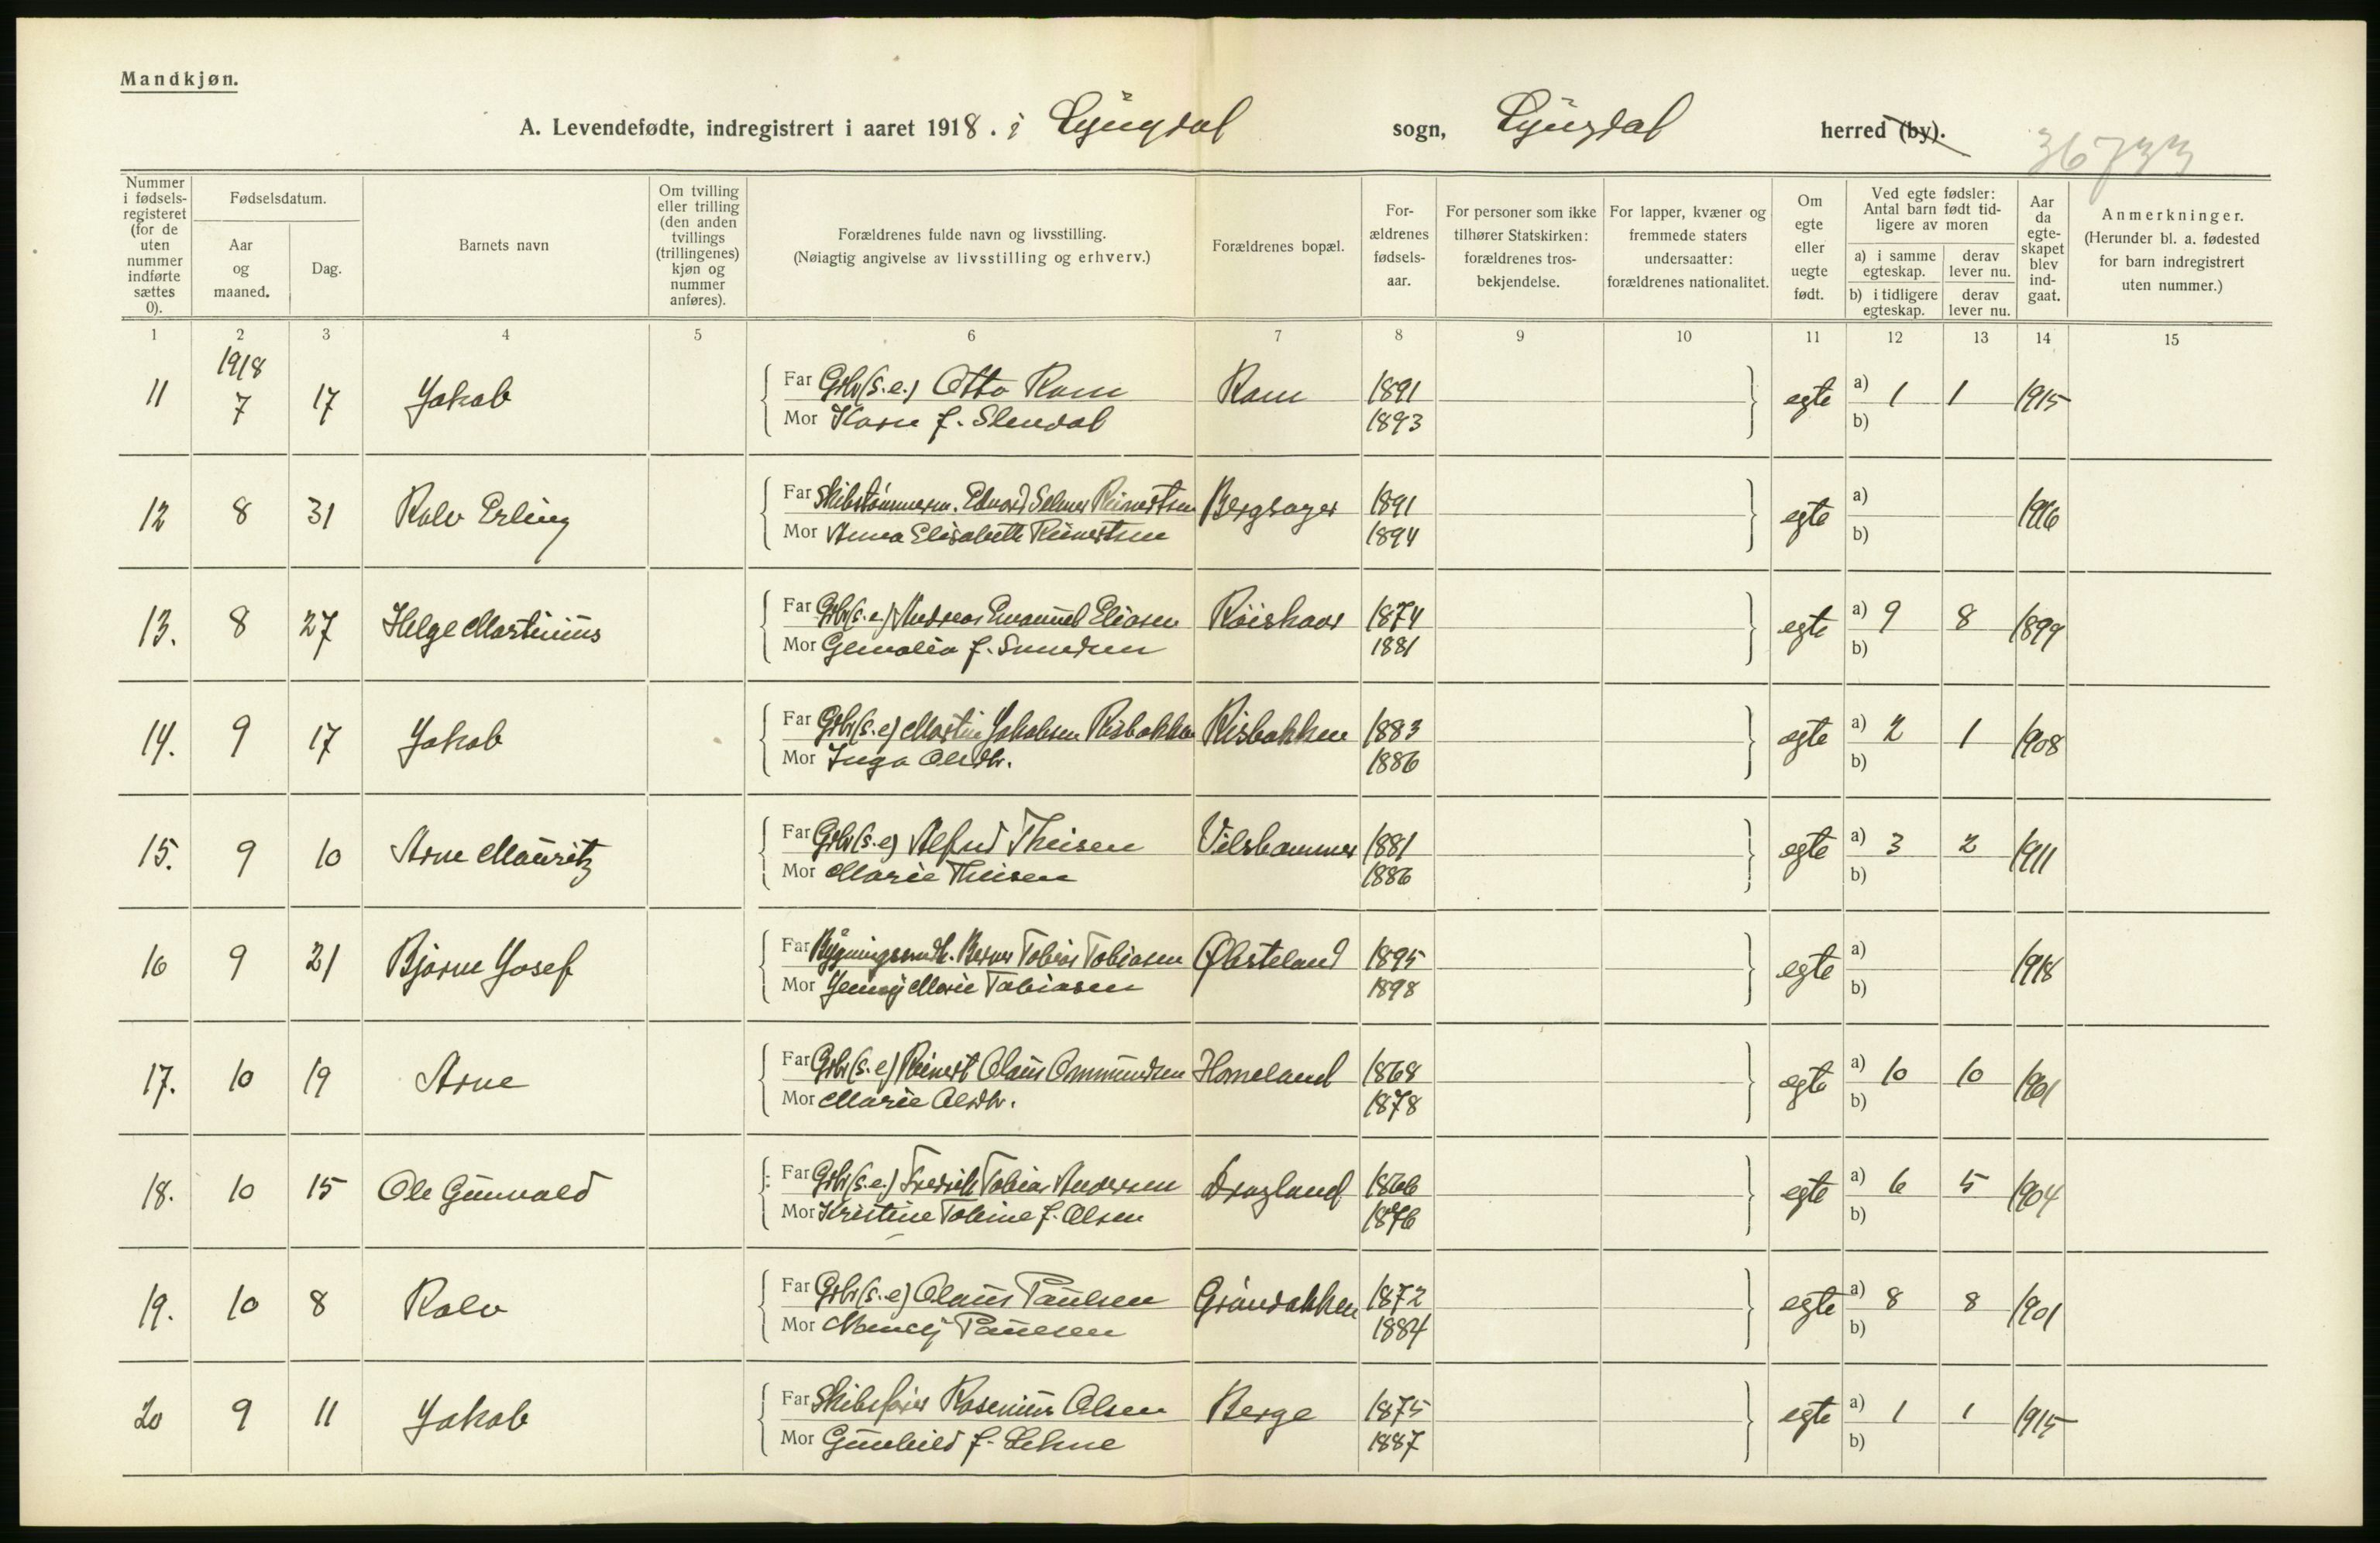 Mandkjøn.
A. Levendefødte, indregistrert i aaret 1918. i Lyngdal sogn, Lyngdal herred (by).
36733
Nummer i fødsels-registeret (for de uten nummer indførte sættes 0).
Fødselsdatum.
Aar og maaned.
Dag.
Barnets navn
Om tvilling eller trilling (den anden tvillings (trillingenes) kjøn og nummer anføres).
Forældrenes fulde navn og livsstilling.
(Nøiagtig angivelse av livsstilling og erhverv.)
Forældrenes bopæl.
For-ældrenes fødsels-aar.
For personer som ikke tilhører Statskirken: forældrenes tros-bekjendelse.
For lapper, kvæner og fremmede staters undersaatter: forældrenes nationalitet.
Om egte eller uegte født.
Ved egte fødsler: Antal barn født tid-ligere av moren
a) i samme egteskap.
derav lever nu.
b) i tidligere egteskap.
derav lever nu.
Aar da egte-skapet blev ind-gaat.
Anmerkninger.
(Herunder bl. a. fødested for barn indregistrert uten nummer.)
1 2 3 4 5 6 7 8 9 10 11 12 13 14 15
1918
11 7 17 Jakob Far Grbr (s.e.) Otto Rom Rom 1891 egte a) 1 1 1915
Mor Karen f. Slendal 1893 b)
12 8 31 Rolv Erling Far Skibstømmerm. Edvard Selmer Reinertsen Bergsager 1891 egte a) 1916
Mor Anna Elisabeth Reinertsen 1894 b)
13. 8 27 Helge Martinius Far Grbr (s.e.) Andreas Emanuel Eliasen Röiskaar 1874 egte a) 9 8 1899
Mor Gemalia f. Samuelsen 1881 b)
14. 9 17 Jakob Far Grbr (s.e) Martin Jakobsen Risbakken Risbakken 1883 egte a) 2 1 1908
Mor Inga Olsdtr. 1886 b)
15. 9 10 Arne Mauritz Far Grbr (s.e) Alfred Theisen Vilshammer 1881 egte a) 3 2 1911
Mor Marie Theisen 1886 b)
16 9 21 Bjarne Josef Far Bygningssndk. Berner Tobias Tobiasen Øbsteland 1895 egte a) 1918
Mor Jenny Marie Tobiasen 1898 b)
17. 10 19 Arne Far Grbr (s.e) Reinert Olaus Ommundsen Homeland 1868 egte a) 10 10 1901
Mor Marie Olsdtr. 1878 b)
18. 10 15 Ole Gunvald Far Grbr (s.e.) Fredrik Tobias Andersen Dragland 1866 egte a) 6 5 1904
Mor Kristine Tobine f. Olsen 1876 b)
19. 10 8 Rolv Far Grbr (s.e) Olaus Paulsen Grändokken 1872 egte a) 8 8 1901
Mor Nancy Paulsen 1884 b)
20 9 11 Jakob Far Skibsfører Rosenius Olsen Berge 1875 egte a) 1 1 1915
Mor Gunhild f. Lehne 1887 b)